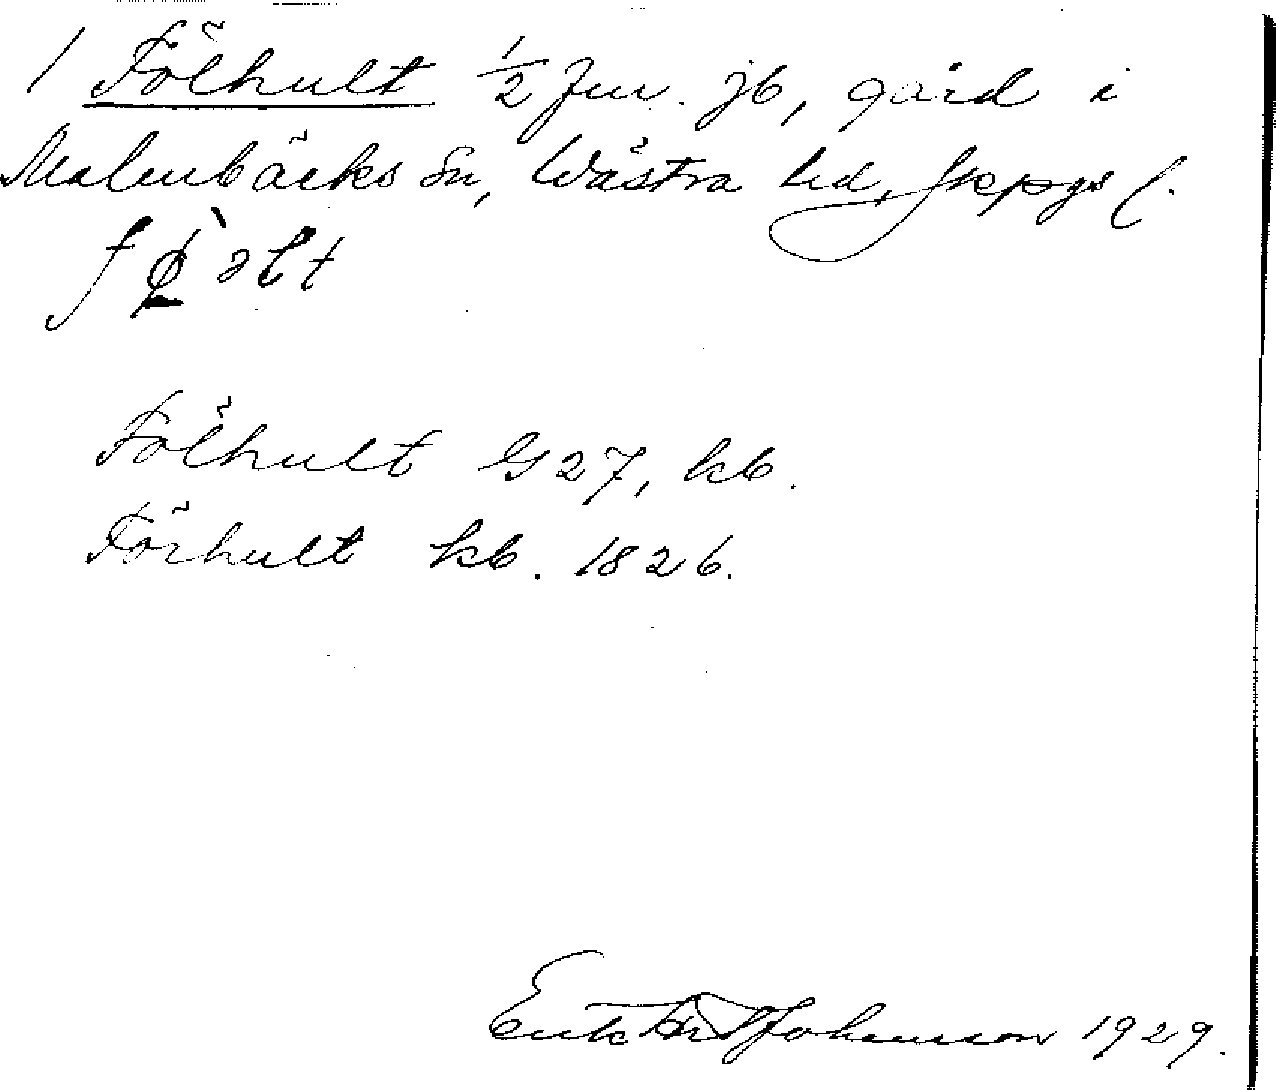 1 Fölhult 1/2 fm. jb, gård i
Malmbäcks sn, Västra hd, Jkpgs l.
Fölhult G 27, kb.
Förhult kb. 1826.
Erik Johansson 1929.